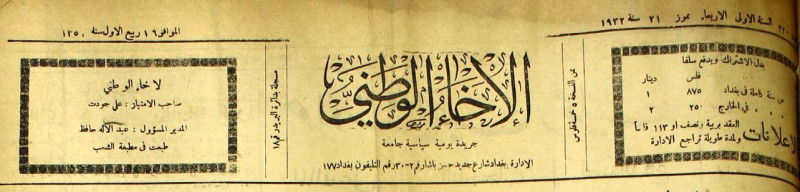 السنة الاولى الاربعاء تموز ٢١ سنة ١٩٣٢
الموافق ١٦ ربيع الاول سنة ١٣٥٠
بدل الاشتراك ويدفع سلفا
فلس دينار
عن سنة كاملة في بغداد ٨٧٥ ١
في الخارج ٢٥٠ ٢
الاعلانات
العقد برية ونصف او ١١٣ فلساً
ولمدة طويلة تراجع الادارة
ثمن النسخة ٥ خمسة فلوس
الإخاء الوطني
جريدة يومية سياسية جامعة
الادارة: بغداد شارع جديد حسن باشا رقم ٢-٣٠ رقم التليفون بغداد ١٧٧
مسجلة بدائرة البريد رقم ١٨
لاخاء الوطني
صاحب الامتياز: علي جودت
المدير المسؤول: عبد الاله حافظ
طبعت في مطبعة الشعب